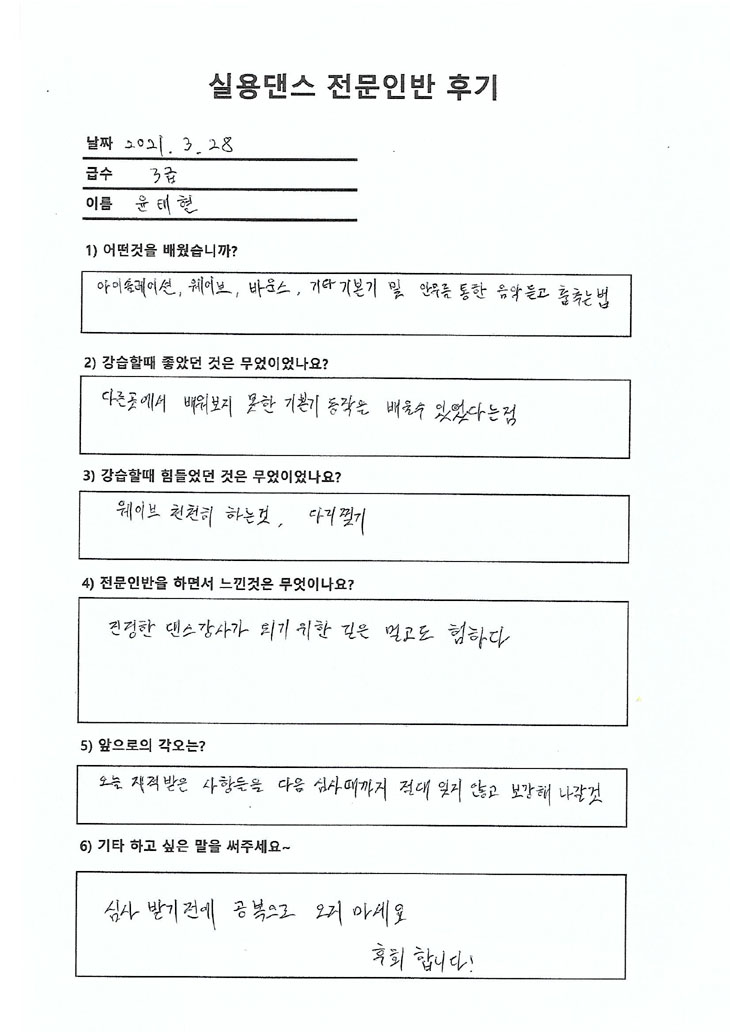 실용댄스 전문인반 후기
날짜 2021. 3. 28
급수 3급
이름 윤태현
1) 어떤것을 배웠습니까?
아이솔레이션, 웨이브, 바운스, 기타 기본기 및 안무를 통한 음악듣고 춤추는법
2) 강습할때 좋았던 것은 무었이었나요?
다른곳에서 배워보지 못한 기본기 동작을 배울수 있었다는점
3) 강습할때 힘들었던 것은 무었이었나요?
웨이브 천천히 하는것, 다리찢기
4) 전문인반을 하면서 느낀것은 무엇이나요?
진정한 댄스강사가 되기 위한 길은 멀고도 험하다
5) 앞으로의 각오는?
오늘 받은 사항들을 다음 심사때까지 절대 잊지 않고 보간해 나갈것
6) 기타 하고 싶은 말을 써주세요~
심사 받기전에 공복으로 오지 마세요
후회 합니다!